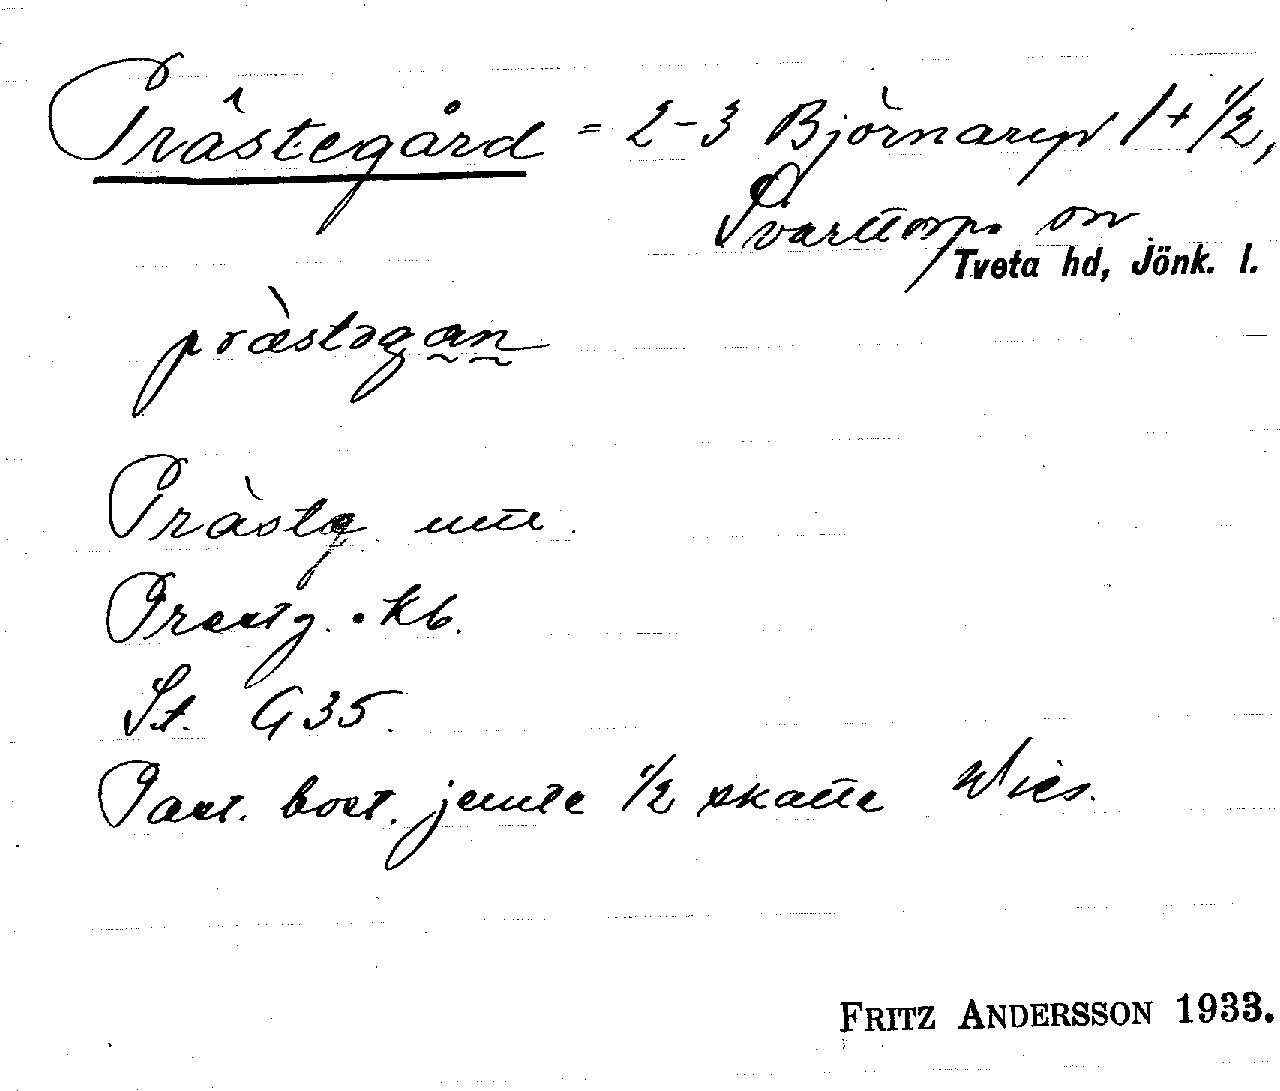 Prästegård = 2-3 Björnarp 1 + 1/2,
Svarttorps sn
Tveta hd, Jönk. l.
præstəgan
Prästg
Prestg. kb.
St. G 35.
Past. bost. jemte 1/2 skatte Wies.
FRITZ ANDERSSON 1933.